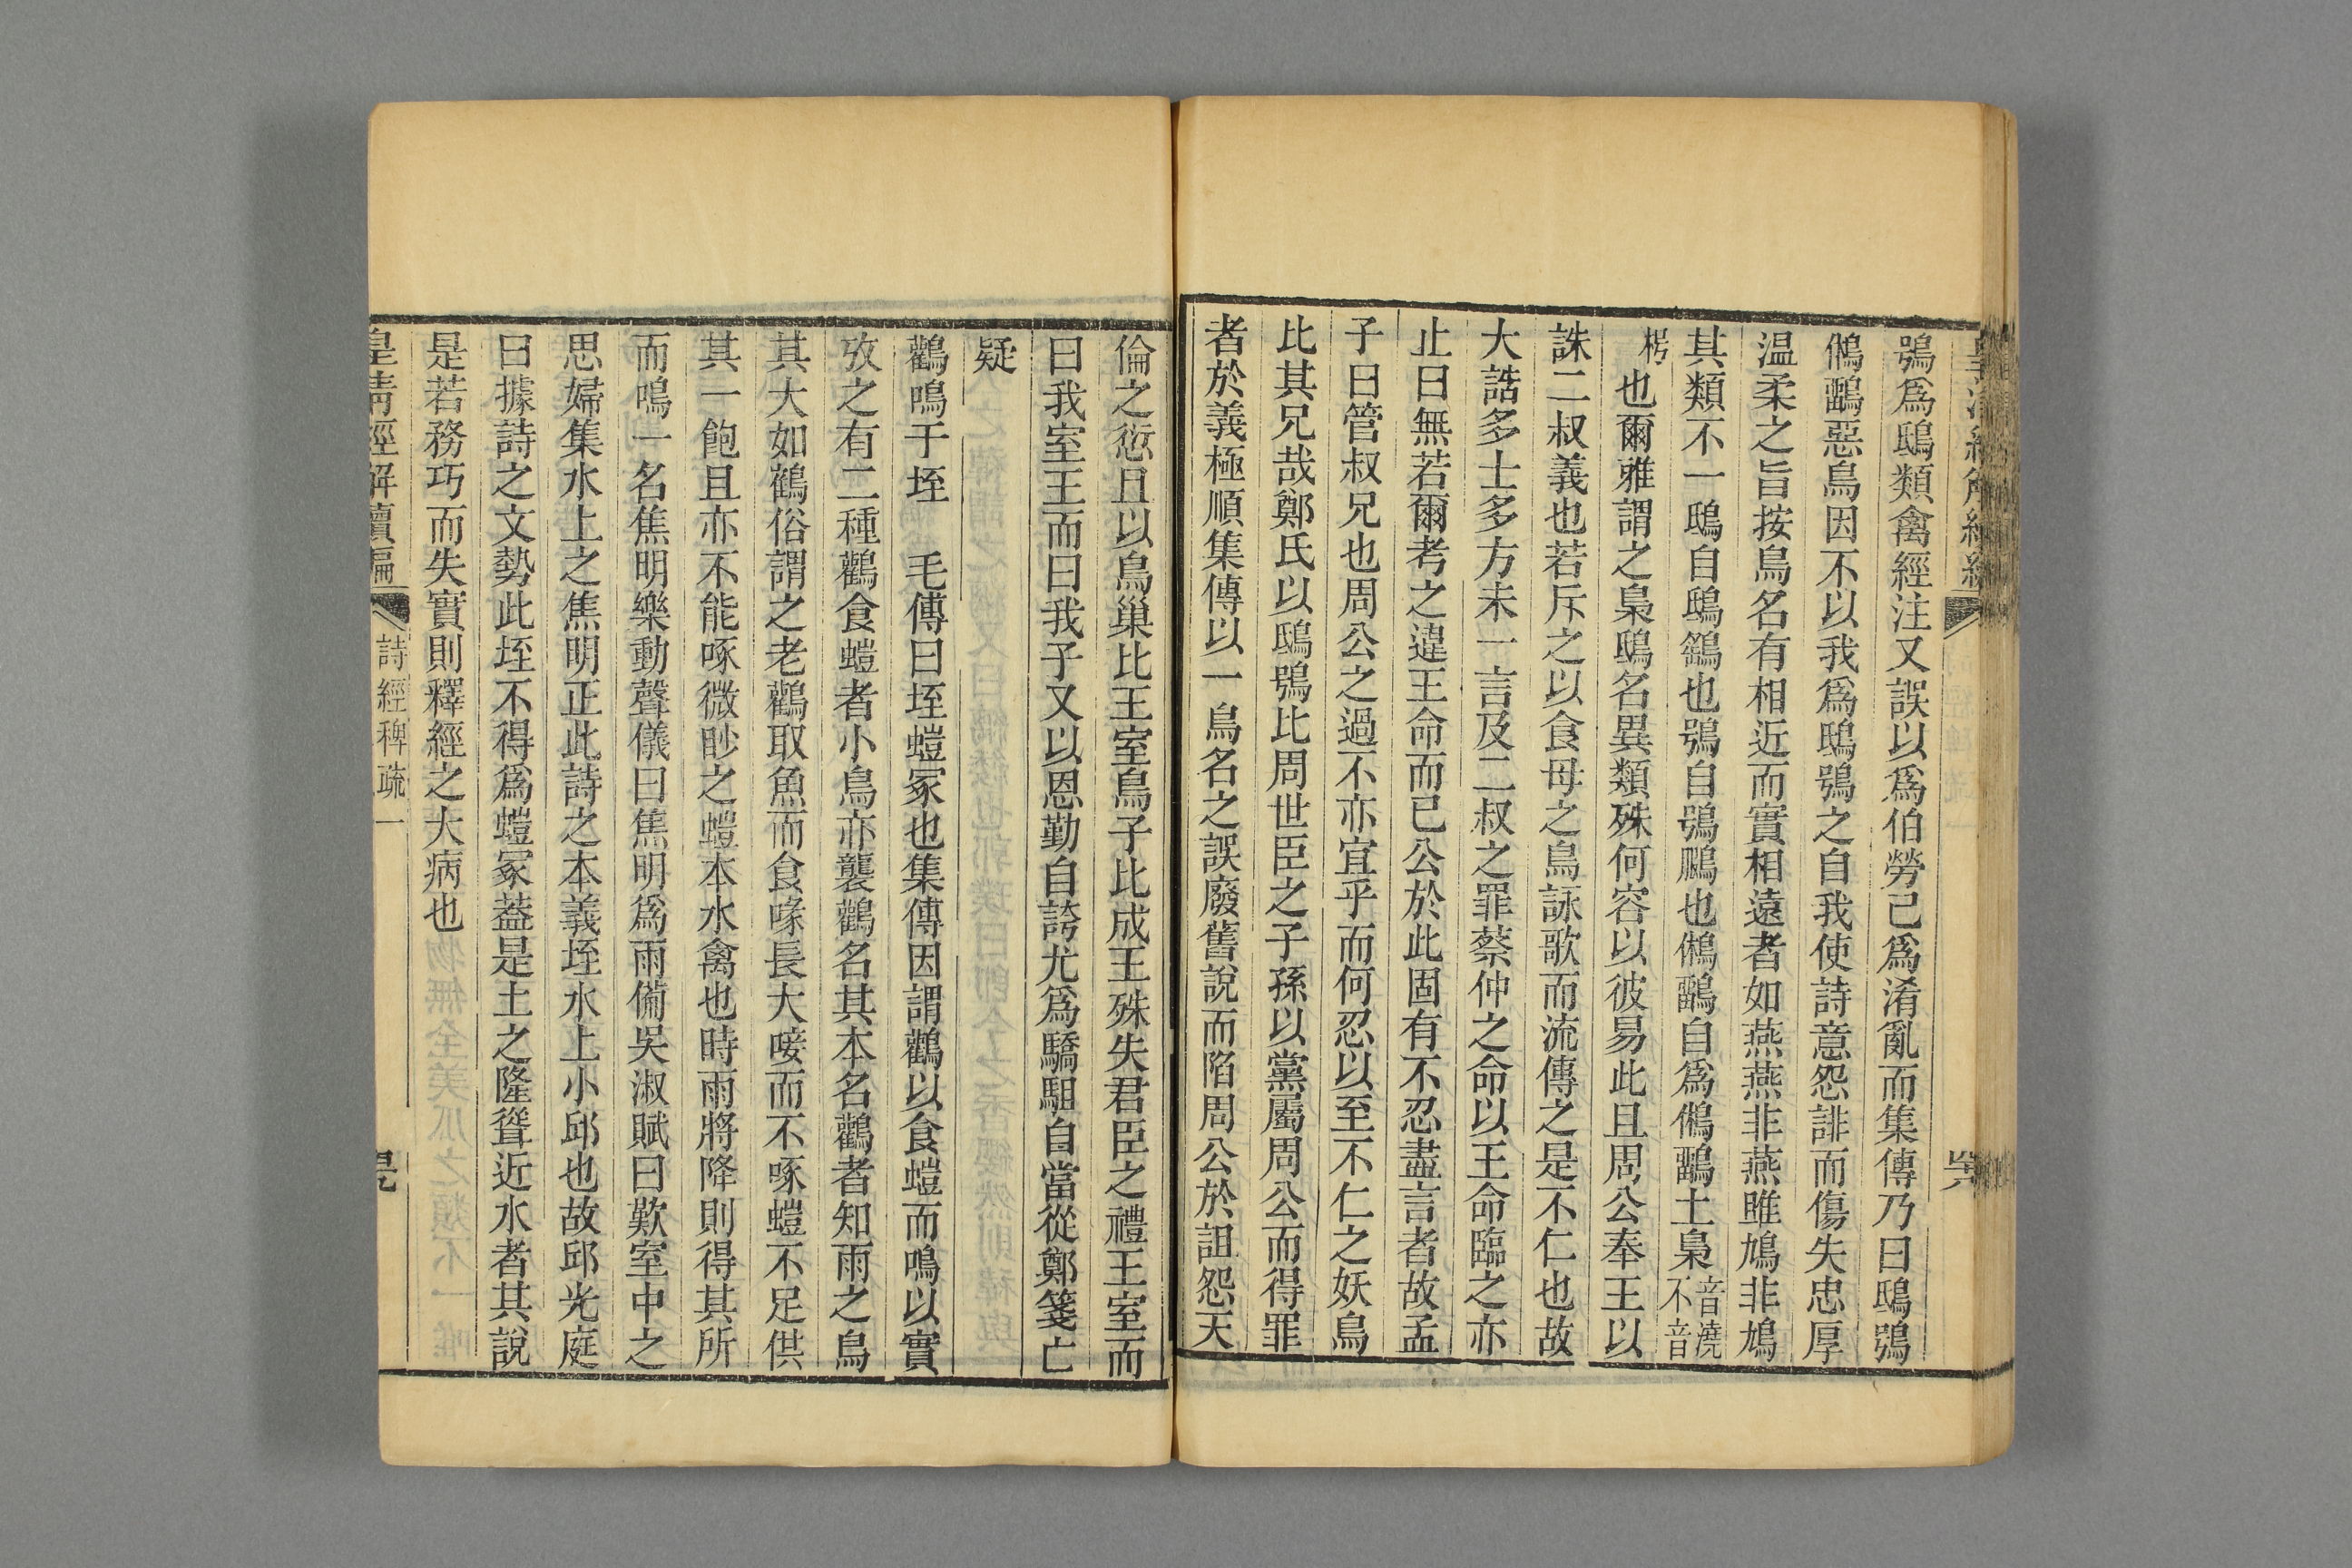 鴞爲鴟類禽經注又誤以爲伯勞已爲淆亂而集傳乃曰鴟鴞
鵂鶹惡鳥因不以我爲鴟鴞之自我使詩意怨誹而傷失忠厚
温柔之旨按鳥名有相近而實相遠者如燕燕非燕雎鳩非鳩
其類不一鴟自鴟鵂也鴞自鴞鵩也鵂鶹自爲鵂鶹土梟音澆不音
梟也爾雅謂之梟鴟名異類殊何容以彼易此且周公奉王以
誅二叔義也若斥之以食母之鳥詠歌而流傳之是不仁也故
大誥多士多方未一言及二叔之罪蔡仲之命以王命臨之亦
止曰無若爾考之違王命而已公於此固有不忍盡言者故孟
子曰管叔兄也周公之過不亦宜乎而何忍以至不仁之妖鳥
比其兄哉鄭氏以鴟鴞比周世臣之子孫以黨屬周公而得罪
者於義極順集傳以一鳥名之誤廢舊說而陷周公於詛怨天
倫之愆且以鳥巢比王室鳥子比成王殊失君臣之禮王室而
曰我室王而曰我子又以恩勤自誇尤爲驕駔自當從鄭箋亡
疑
鸛鳴于垤　毛傳曰垤螘冢也集傳因謂鸛以食螘而鳴以實
攷之有二種鸛食螘者小鳥亦襲鸛名其本名鸛者知雨之鳥
其大如鶴俗謂之老鸛取魚而食喙長大唼而不啄螘不足供
其一飽且亦不能啄微眇之螘本水禽也時雨將降則得其所
而鳴一名焦明樂動聲儀曰焦明爲雨備吳淑賦曰歎室中之
思婦集水上之焦明正此詩之本義垤水上小邱也故邱光庭
曰據詩之文勢此垤不得爲螘冢葢是土之隆聳近水者其說
是若務巧而失實則釋經之大病也
皇清經解續編　詩經稗疏一